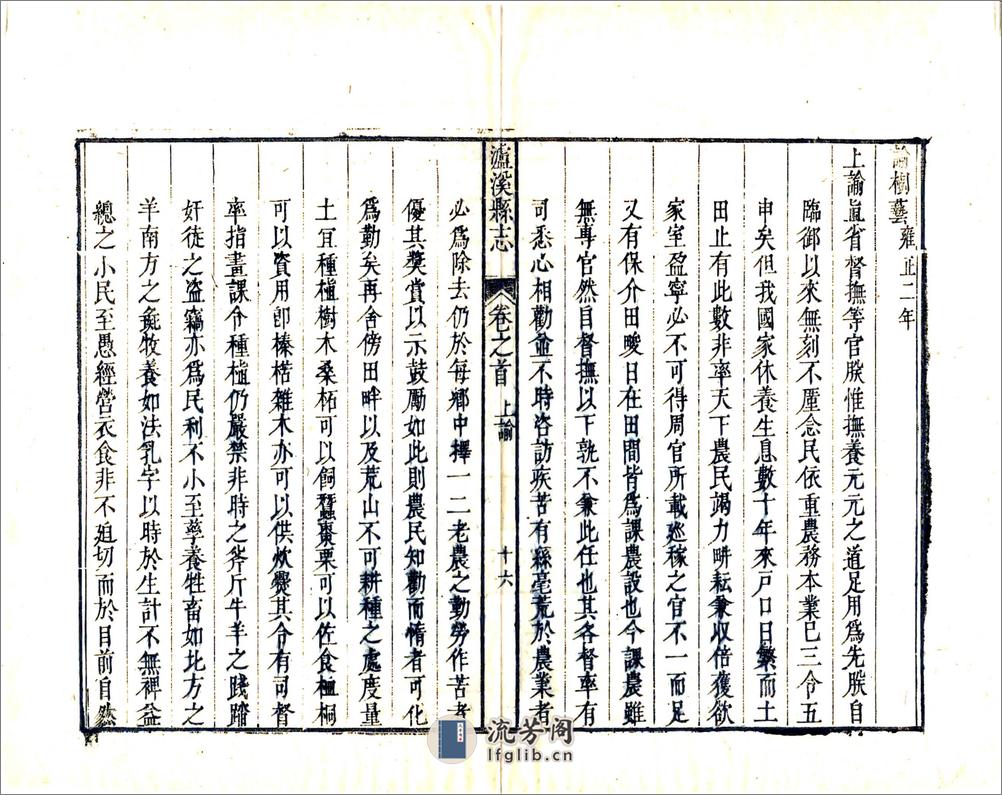 諭樹藝雍正二年
上諭直省督撫等官朕惟撫養元元之道足用爲先朕自
臨御以來無刻不厪念民依重農務本業已三令五
申矣但我國家休養生息數十年來戸口日繁而土
田止有此數非率天下農民竭力畊耘兼收倍獲欲
家室盈寧必不可得周官所載巡稼之官不一而足
又有保介田畯日在田間皆爲課農設也今課農雖
無專官然自督撫以下孰不兼此任也其各督率有
司悉心相勸並不時咨訪疾苦有絲毫荒於農業者
瀘溪縣志 卷之首 上諭 十六
必爲除去仍於每鄉中擇一二老農之勤勞作苦者
優其奬賞以示鼓勵如此則農民知勸而惰者可化
爲勤矣再舍傍田畔以及荒山不可耕種之處度量
土宜種植樹木桑柘可以飼蠶棗栗可以佐食桕桐
可以資用卽榛楛雜木亦可以供炊爨其令有司督
率指畫課令種植仍嚴禁非時之斧斤牛羊之踐踏
奸徒之盜竊亦爲民利不小至孳養牲畜如北方之
羊南方之彘牧養如法乳字以時於生計不無裨益
總之小民至愚經營衣食非不廹切而於目前自然
流芳阁
lfglib.cn